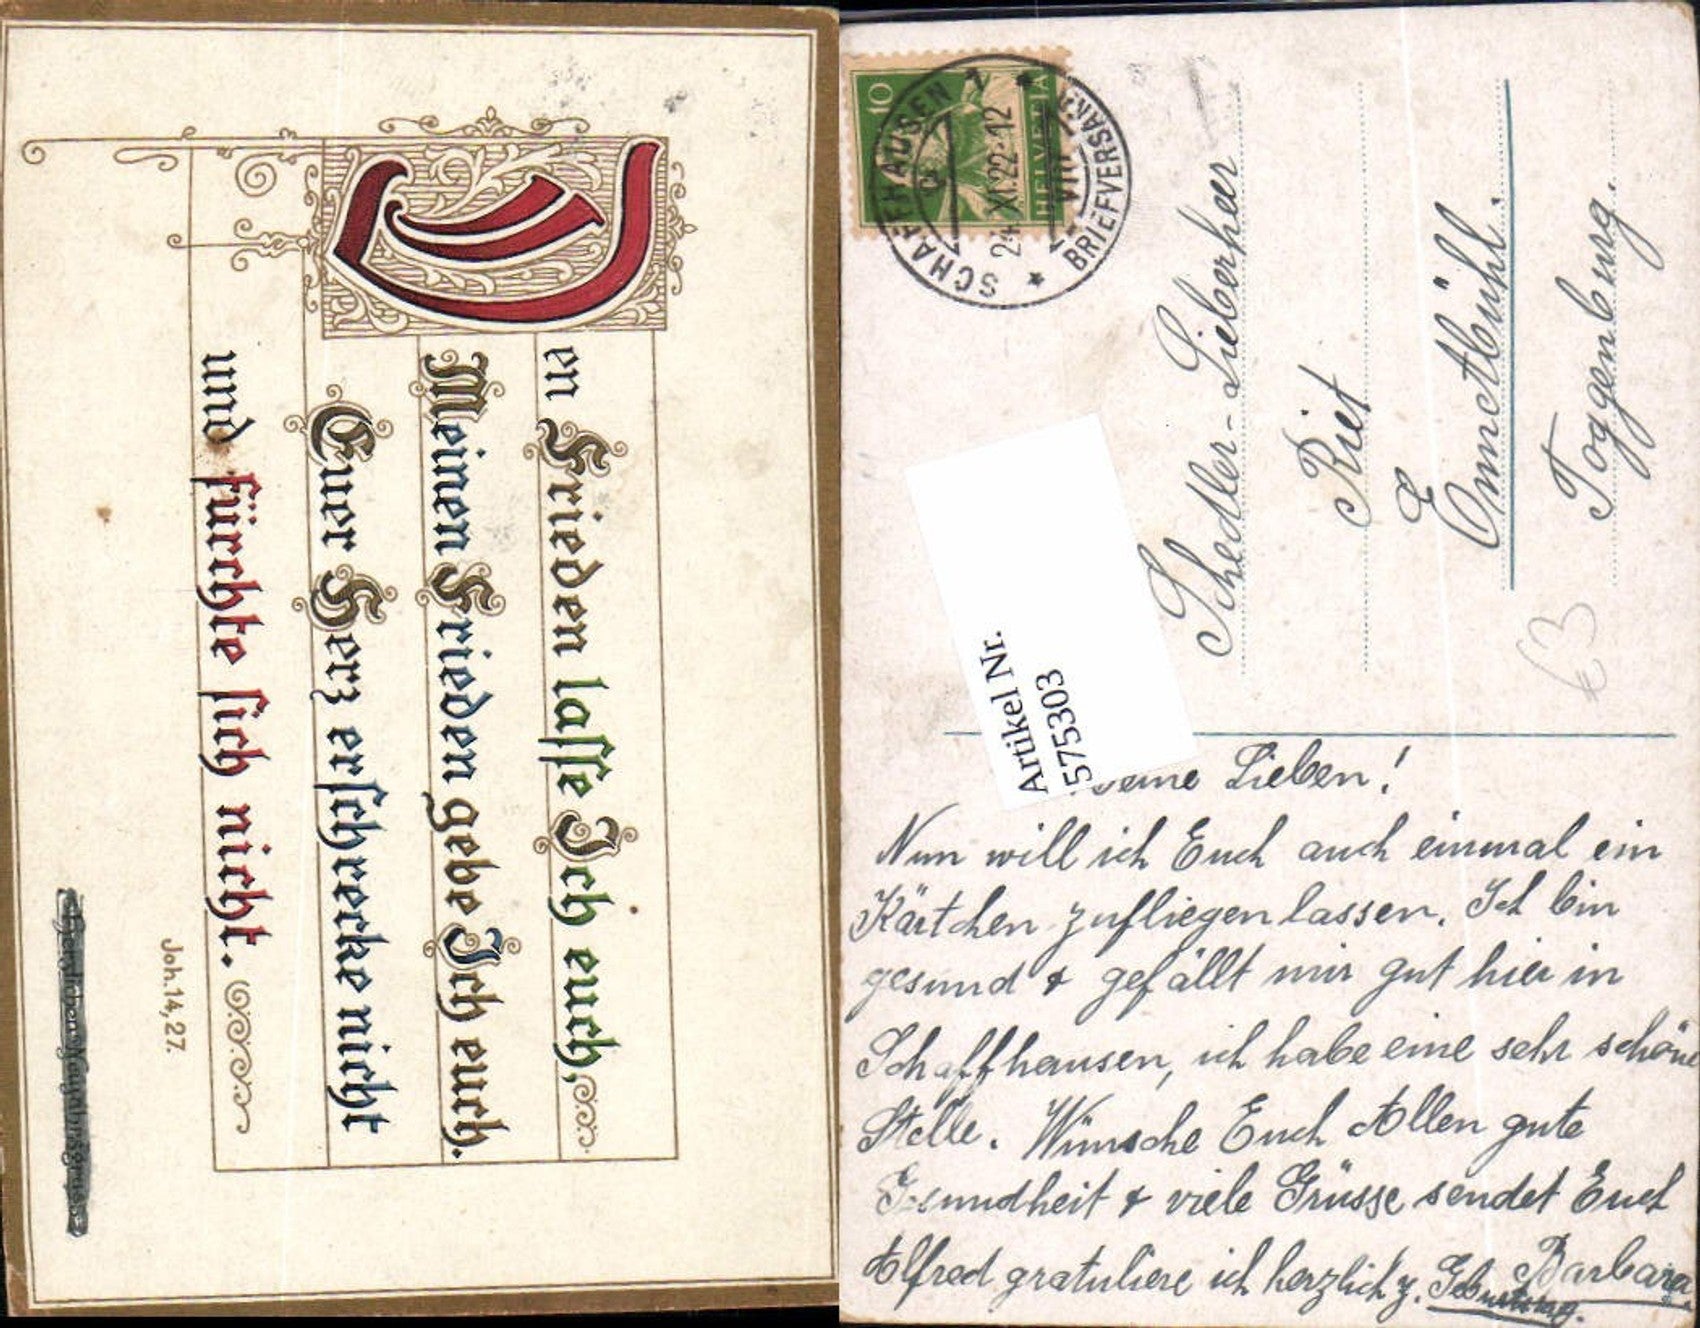 Den Frieden lasse Ich euch,
Meinen Frieden gebe Ich euch.
Euer Herz erschrecke nicht
und fürchte sich nicht.
Joh. 14, 27.
10
HELVETIA
SCHAFFHAUSEN 1
24.XI.22-12
VIII
BRIEFVERSAND
Schedler-Lieberherr
Riet
E
Ennetbühl.
Toggenburg.
€3
Artikel Nr.
575303
Meine Lieben!
Nun will ich Euch auch einmal ein
Kärtchen zufliegen lassen. Ich bin
gesund & gefällt mir gut hier in
Schaffhausen, ich habe eine sehr schöne
Stelle. Wünsche Euch Allen gute
Gesundheit & viele Grüsse sendet Euch
Barbara.
Alfred gratuliere ich herzlich z. Geburtstag.